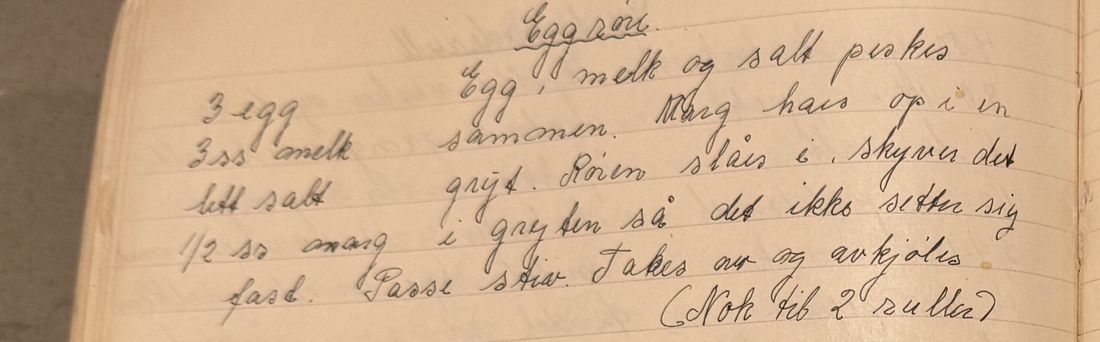 Eggrøre.
3 egg
3 ss melk
litt salt
1/2 ss marg
Egg, melk og salt piskes
sammen. Marg haes op i en
gryt. Røren slåes i, skyver det
i gryten så det ikke setter sig
fast. Passe stiv. Takes av og avkjøles
(Nok til 2 ruller)